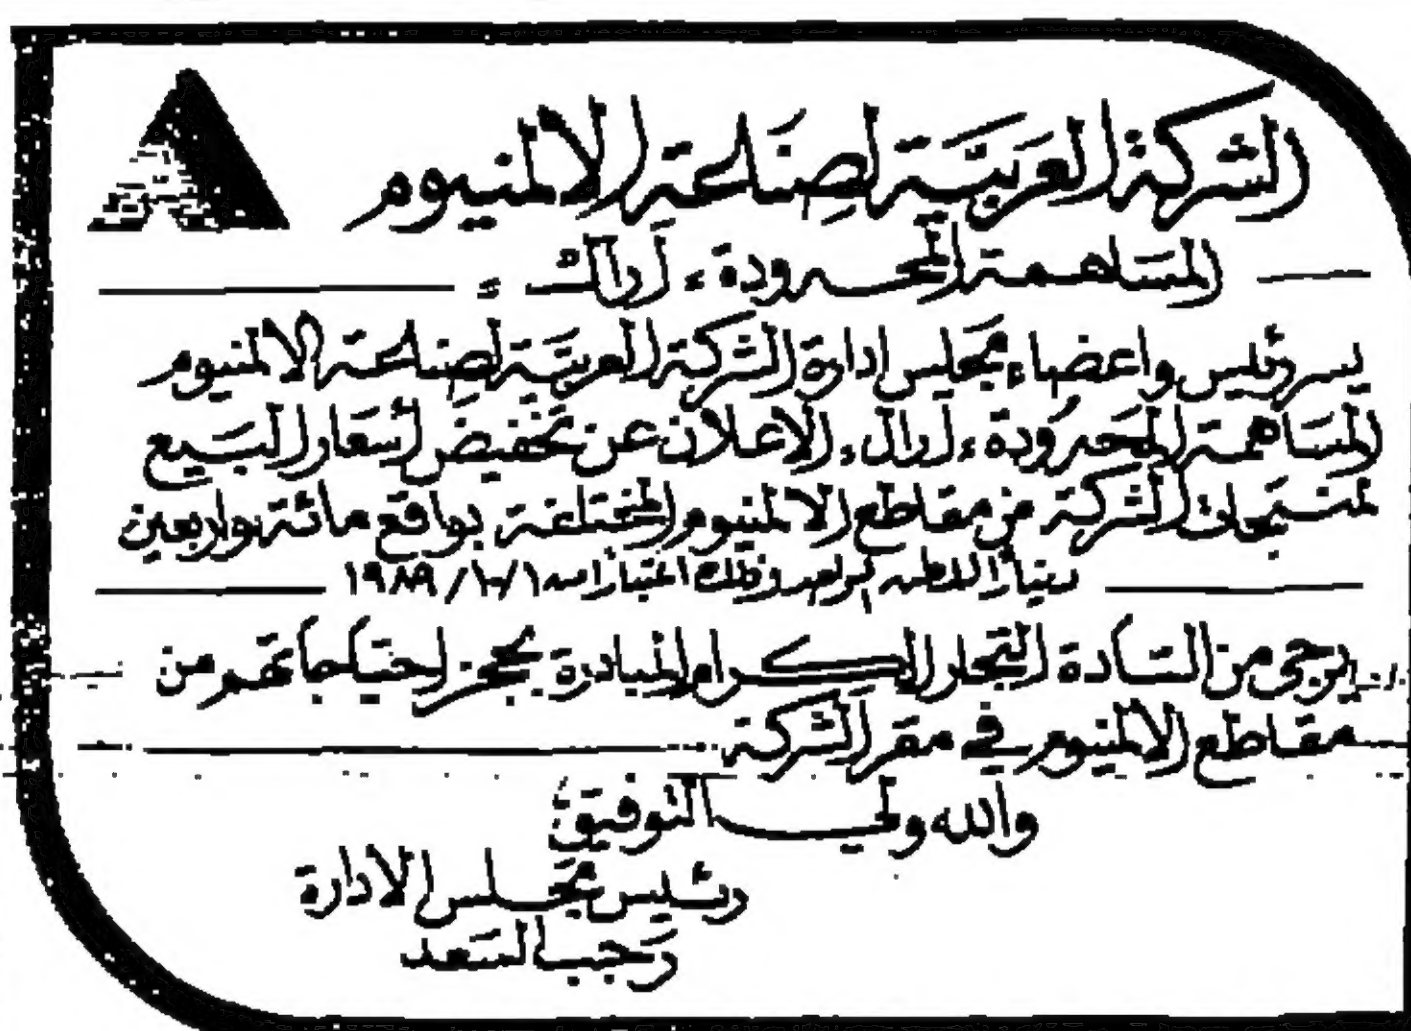 الشركة العربية لصناعة الالمنيوم
المساهمة المحدودة "ارال"
يسر رئيس واعضاء مجلس ادارة الشركة العربية لصناعة الالمنيوم
المساهمة المحدودة "ارال" الاعلان عن تخفيض أسعار البيع
لمنتجات الشركة من مقاطع الالمنيوم المختلفة بواقع مائة واربعين
ديناراً للطن الواحد وذلك اعتباراً من ١٩٨٩/١٠/١
يرجى من السادة التجار الكرام المبادرة بحجز احتياجاتهم من
مقاطع الالمنيوم في مقر الشركة
والله ولي التوفيق
رئيس مجلس الادارة
رجب السعد